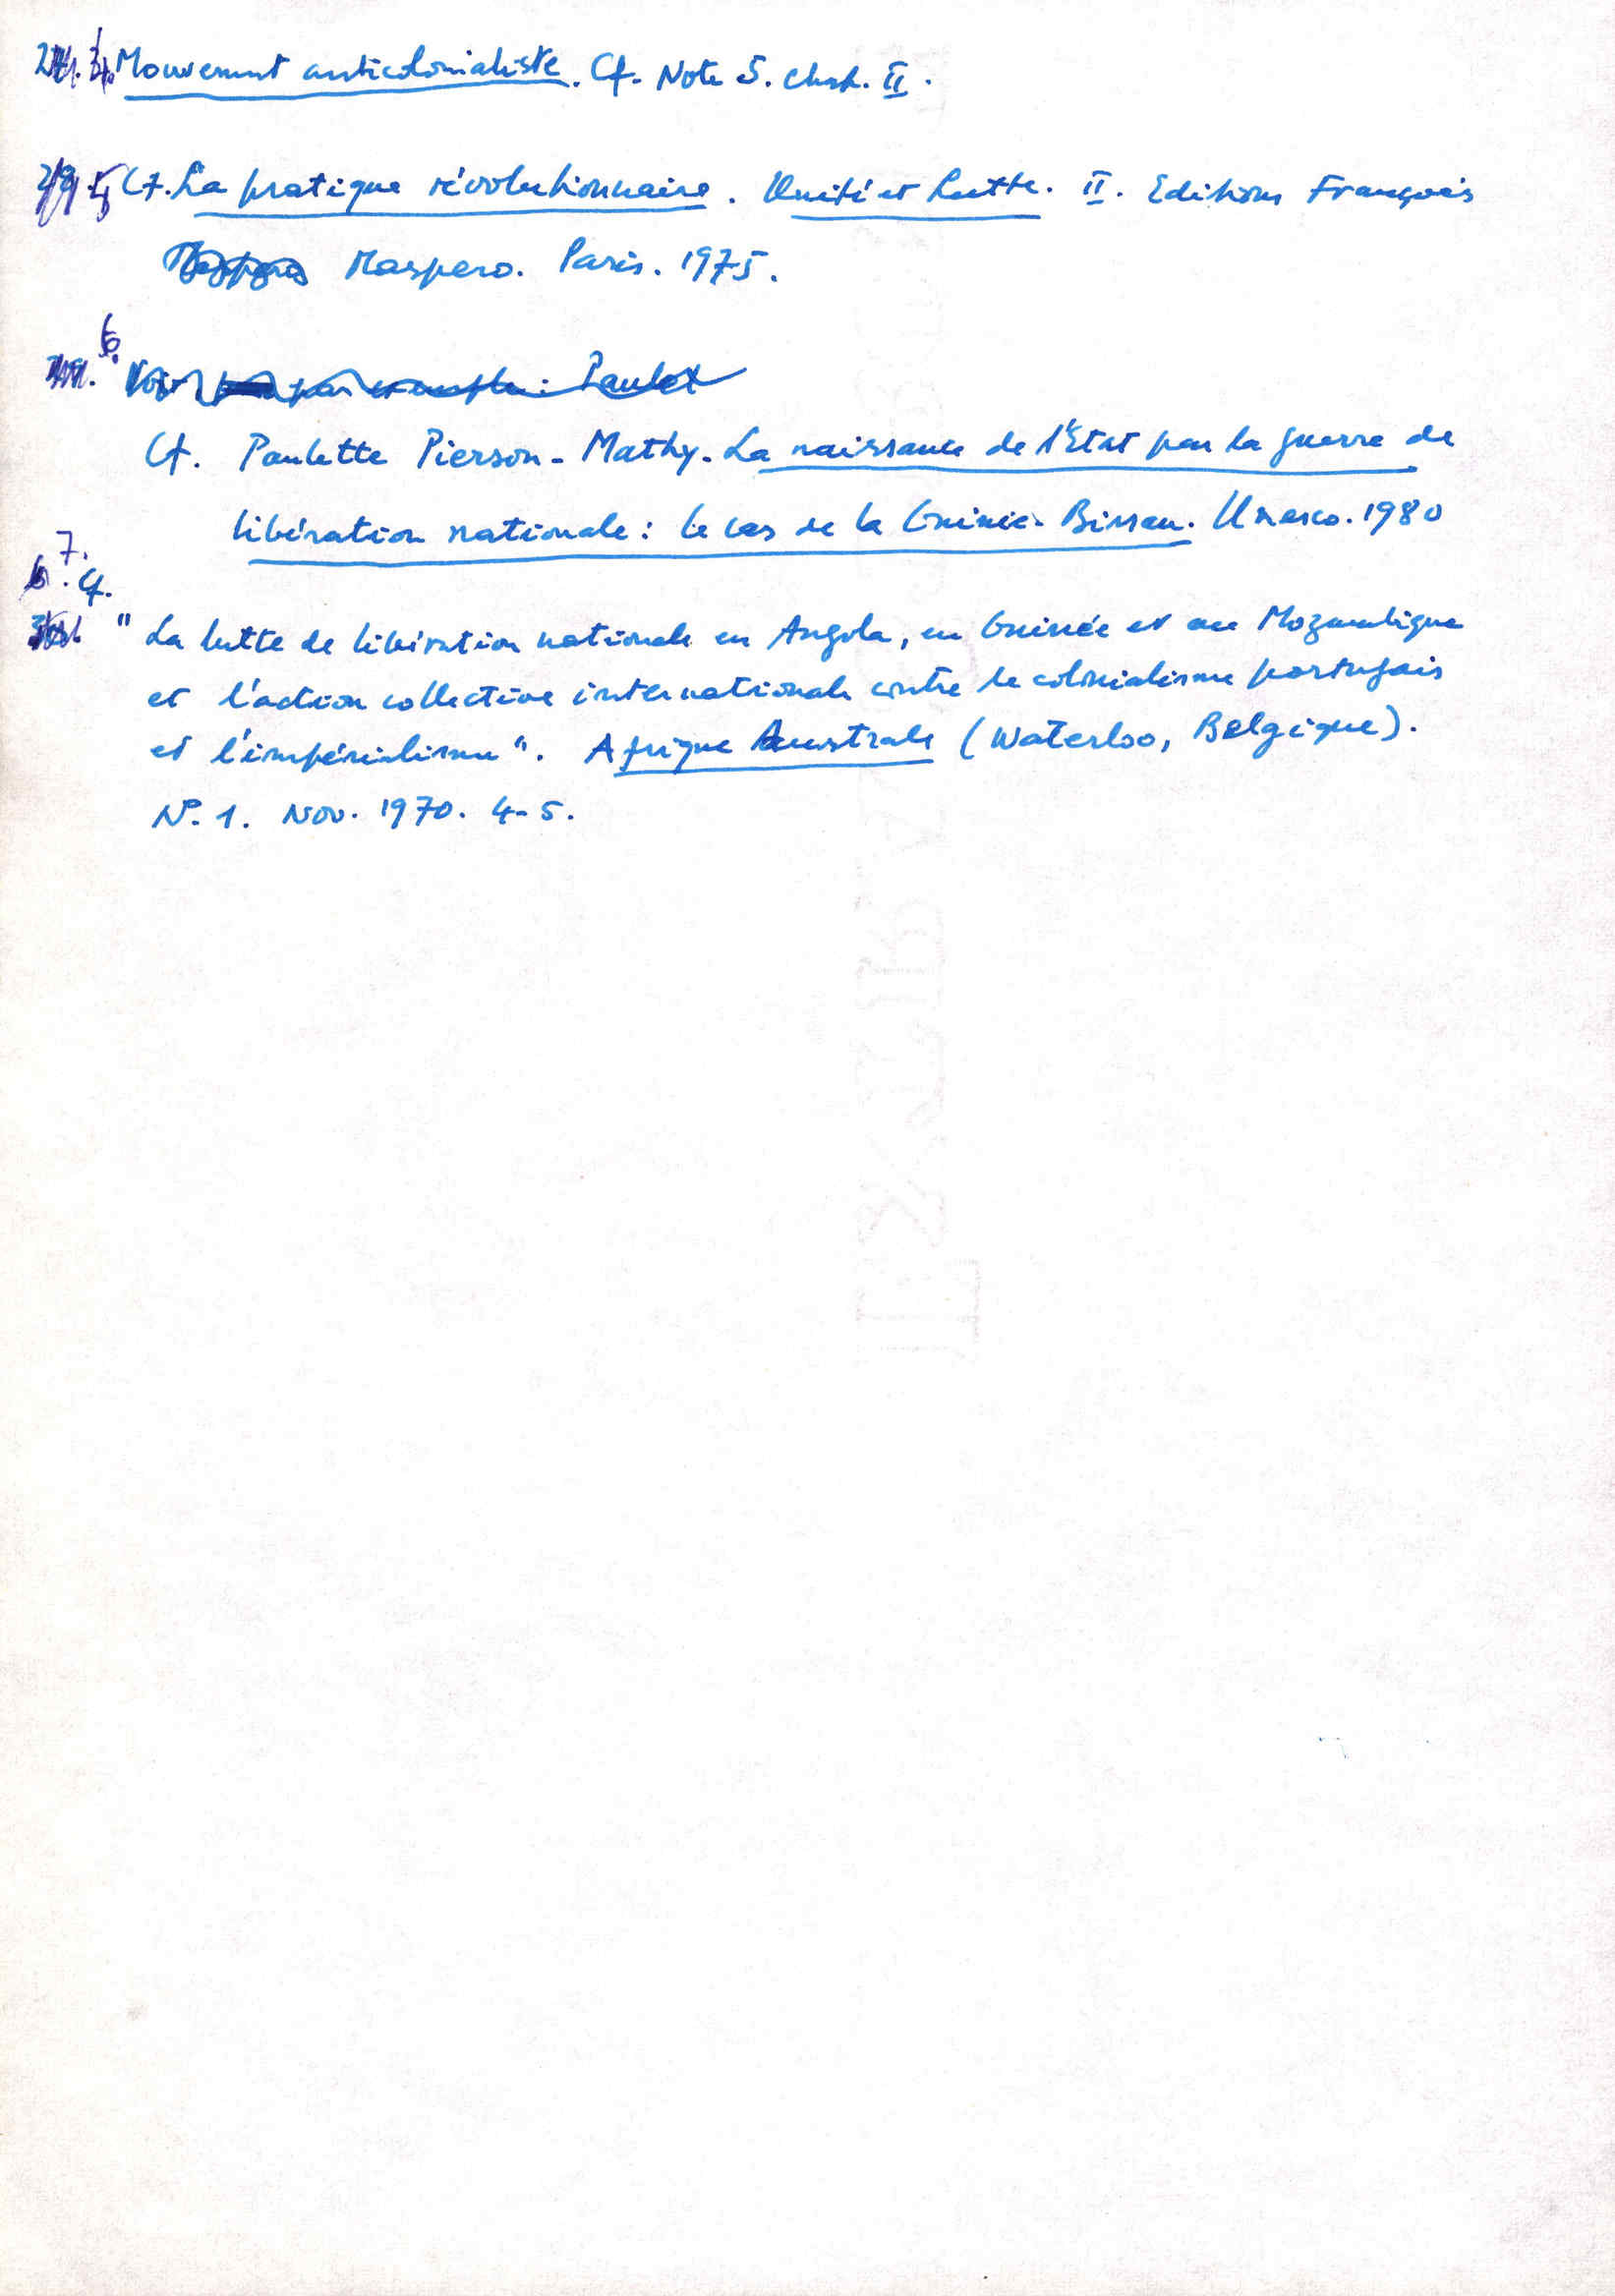 4. Mouvement anticolonialiste. Cf. Note 5. Chap. II.
5 Cf. La pratique révolutionnaire. Unité et Lutte. II. Editions François
Maspero. Paris. 1975.
6.
Voir par exemple: Paulet
Cf. Paulette Pierson-Mathy. La naissance de l'Etat par la guerre de
libération nationale: le cas de la Guinée-Bissau. Unesco. 1980
7.
Cf.
"La lutte de libération nationale en Angola, en Guinée et au Mozambique
et l'action collective internationale contre le colonialisme portugais
et l'impérialisme". Afrique Australe (Waterloo, Belgique).
Nº. 1. Nov. 1970. 4-5.